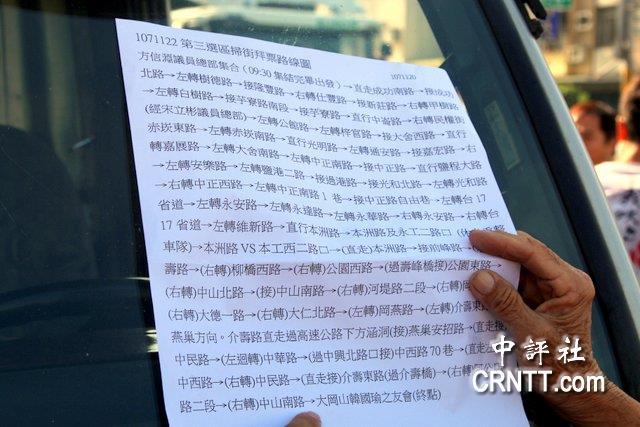 1071122 第三選區掃街拜票路線圖
1071120
方信淵議員總部集合（09:30 集結完畢出發）→直走成功南路→接成功
北路→左轉樹德路→接隆豐路→右轉仕豐路→接新莊路→右轉甲樹路
→左轉白樹路→接芋寮路南段→接芋寮路→直行中崙路→右轉民權街
(經宋立彬議員總部)→左轉公館路→左轉梓官路→接大舍西路→直行
赤崁東路→左轉赤崁南路→直行光明路→左轉通安路→接嘉宏路→右
轉嘉展路→左轉大舍南路→左轉中正南路→接中正路→直行鹽程大路
→左轉安樂路→左轉鹽港二路→接過港路→接光和北路→左轉光和路
→右轉中正西路→左轉中正南路1 巷→接中正路自由巷→左轉台 17
省道→左轉永安路→左轉永達路→左轉永華路→右轉永安路→右轉台
17 省道→左轉維新路→直行本洲路→本洲路及永工二路口 (休
車隊)→本洲路 VS 本工西二路口→(直走)本洲路→接前峰路→
壽路→(右轉)柳橋西路→(右轉)公園西路→(過壽峰橋接)公園東路→
(右轉)中山北路→(接)中山南路→(右轉)河堤路二段→(右轉)
(右轉)大德一路→(右轉)大仁北路→(左轉)岡燕路→(左轉)介壽東
燕巢方向。介壽路直走過高速公路下方涵洞(接)燕巢安招路→(直走接)
中民路→(左迴轉)中華路→(過中興北路口接)中西路 70 巷→(直走
中西路→(右轉)中民路→(直走接)介壽東路(過介壽橋)→(右轉)
路二段→(右轉)中山南路→大岡山韓國瑜之友會(終點)
中評社
CRNTT.com